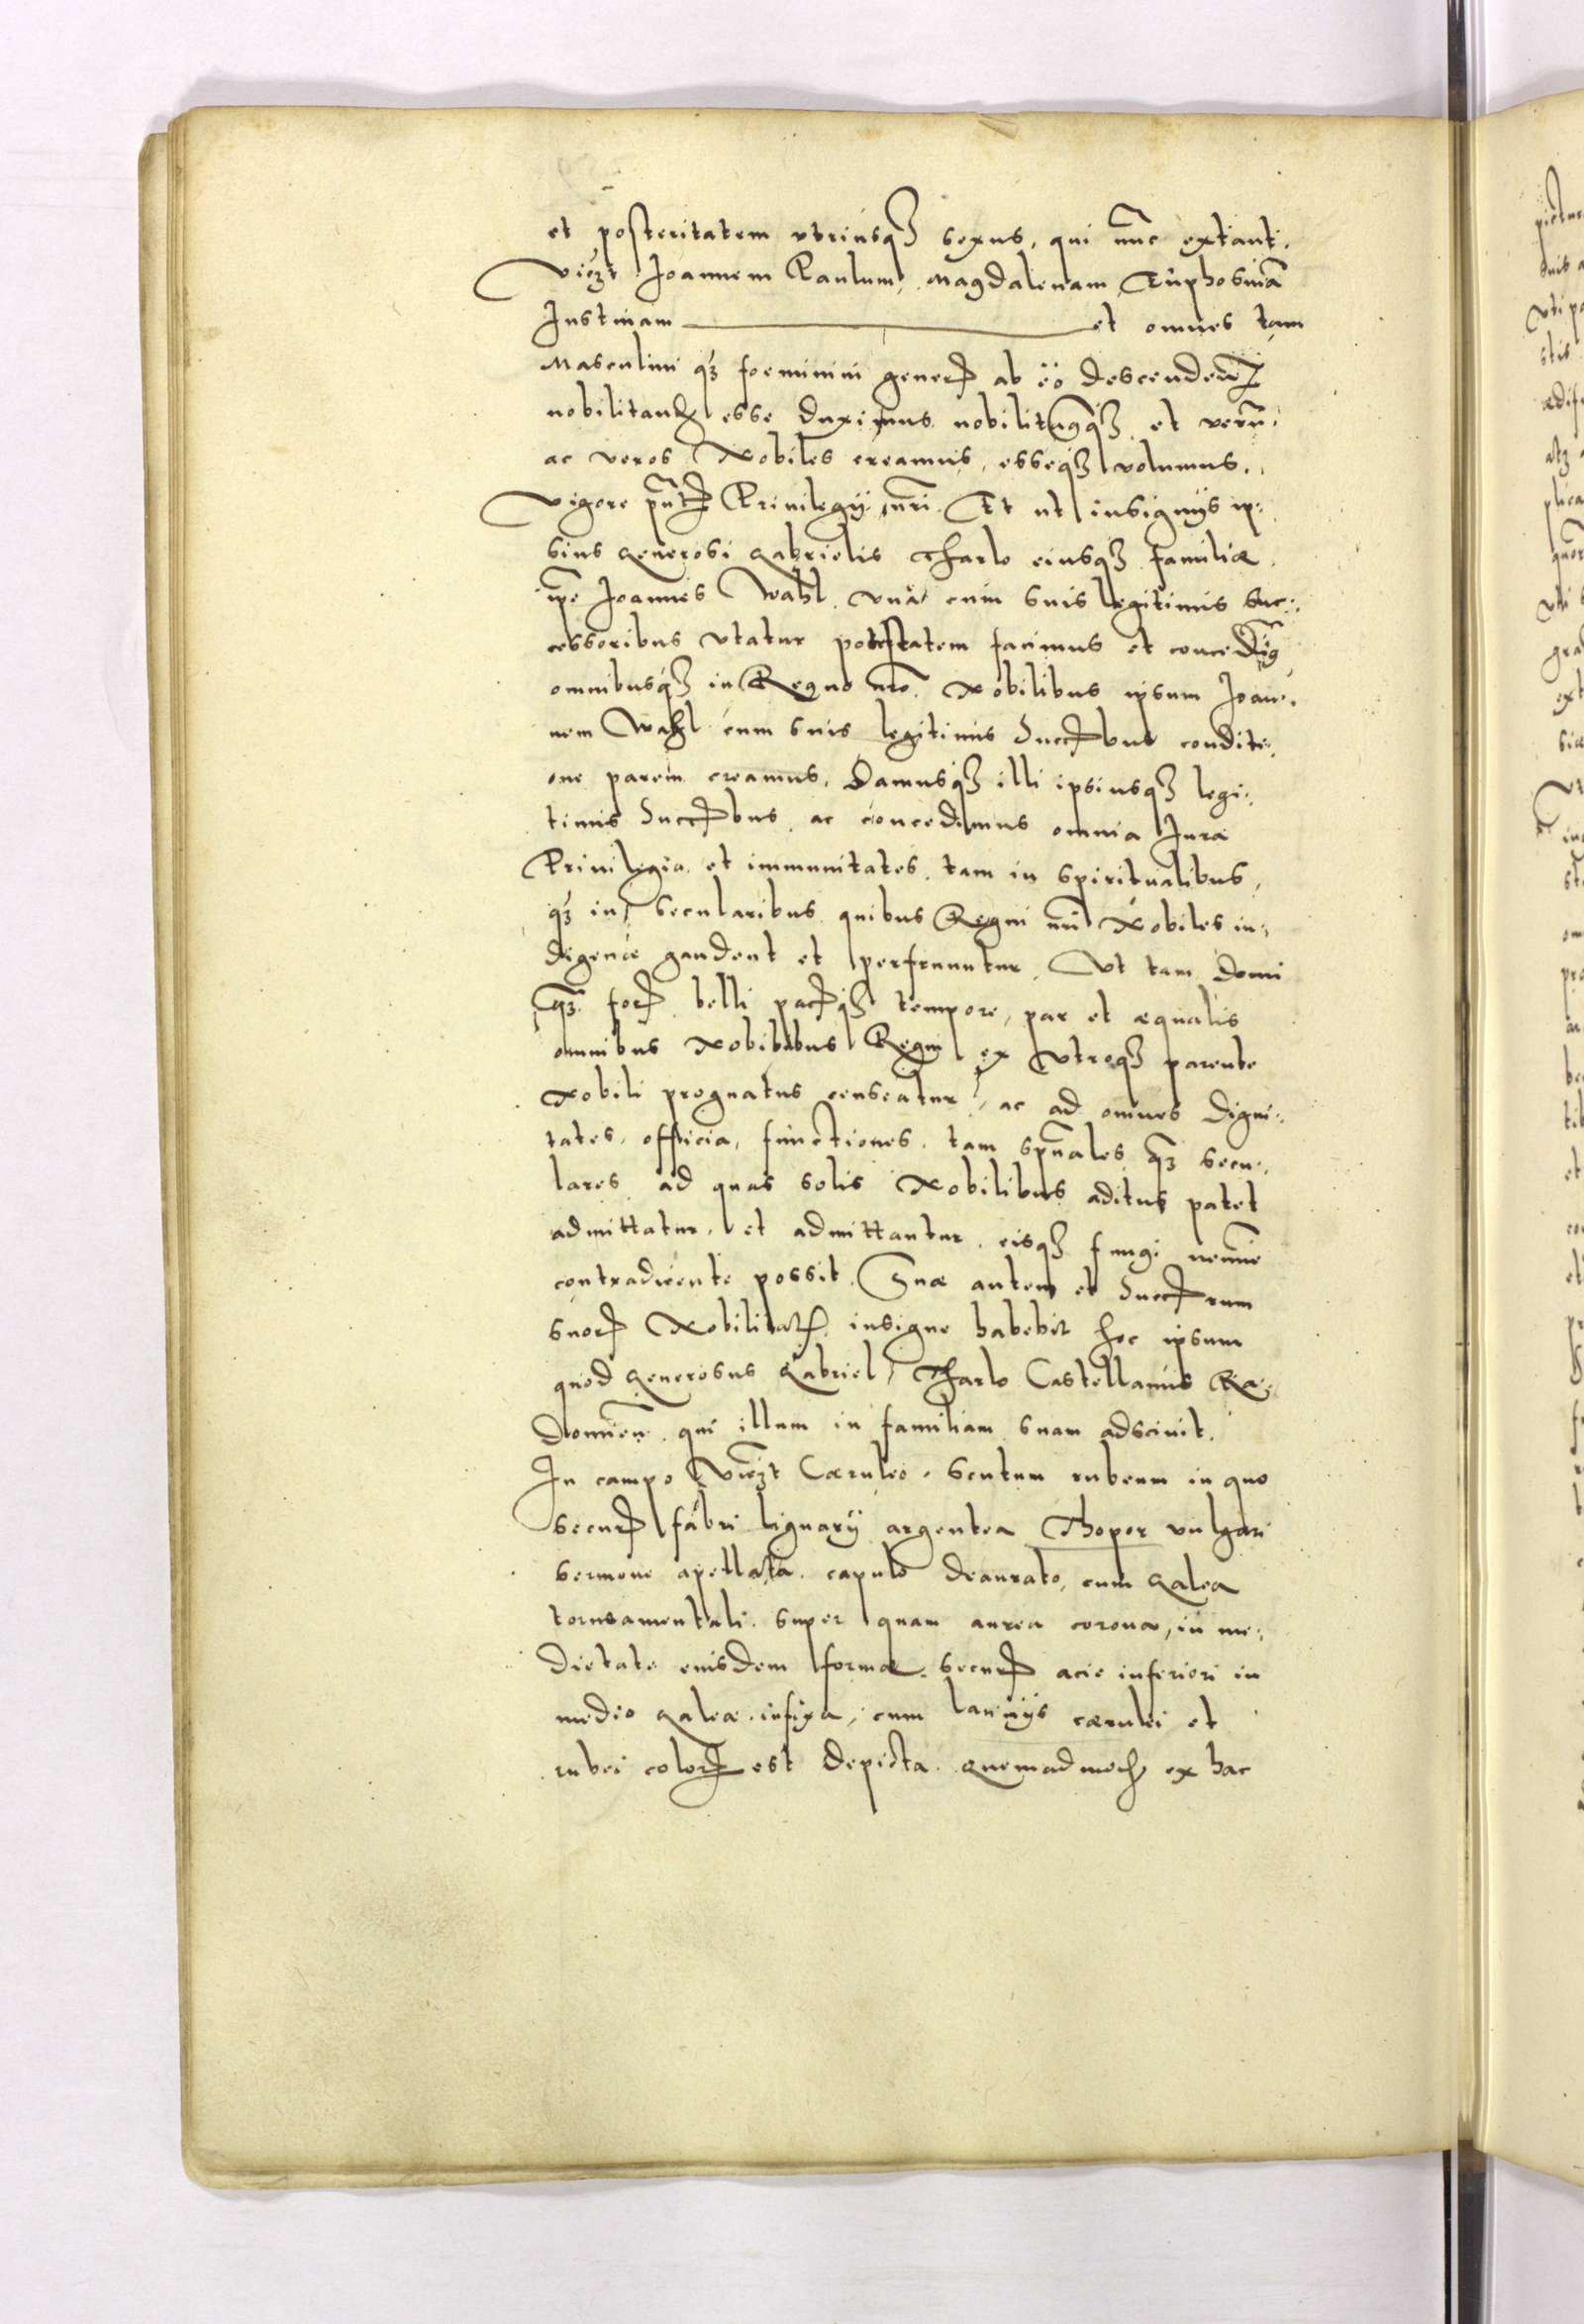 et posteritatem vtriusq₃ sexus, qui nūc extant.
vicꝫt Joannem Paulum, Magdalenam, Euphosinā
Justinam et omnes tam
Masculini qꝫ foeminini generꝭ ab eo descendeñ
nobilitand esse duximus nobilitamusqꝫ et verū
ac veros Nobiles creamus, esseqꝫ volumus.
vigore pñtꝭ Priuilegij nr̃i. Et ut insignijs ip:
sius Generosi Gabrielis Tharlo eiusqꝫ familiæ
ip̃e Joannes Wahl vnà cum suis legitimis Suc:
cessoribus vtatur potestatem facimus et concedimꝰ
omnibusqꝫ in Regno nr̃o Nobilibus ipsum Joan:
nem Wahl cum suis legitimis Succꝭbus conditi:
one parem creamus. Damusqꝫ illi ipsiusqꝫ legi:
timis Succꝭbus ac concedimus omnia Jura
Priuilegia et immunitates tam in spiritualibus,
qꝫ in secularibus quibus Regni nr̃i Nobiles in:
digenæ gaudent et perfruuntur. Vt tam domi
qꝫ forꝭ belli pacꝭqꝫ tempore, par et æqualis
omnibus Nobilibus Regni ex vtroqꝫ parente
Nobili prognatus censeatur, ac ad omnes digni:
tates, officia, functiones tam spũales qꝫ secu:
lares ad quas solis Nobilibus aditus patet
admittatur, et admittantur, eisqꝫ fungi nemine
contradicente possit. Suæ autem et Succꝭrum
suorꝭ Nobilitatꝭ insigne habebit hoc ipsum
quod Generosus Gabriel Tharlo Castellanus Ra:
domieñ qui illum in familiam suam adsciuit.
In campo vicꝫt Cæruleo, scutum rubeum in quo
securꝭ fabri lignarij argentea Thopor vulgari
sermone apellata, capulo deaurato, cum Galea
torneamentali super quam aurea corona, in me:
dietate eiusdem formæ securꝭ acie inferiori in
medio Galeæ infixa, cum lacinijs cærulei et
rubei colorꝭ est depicta. Quemadmod ex hac